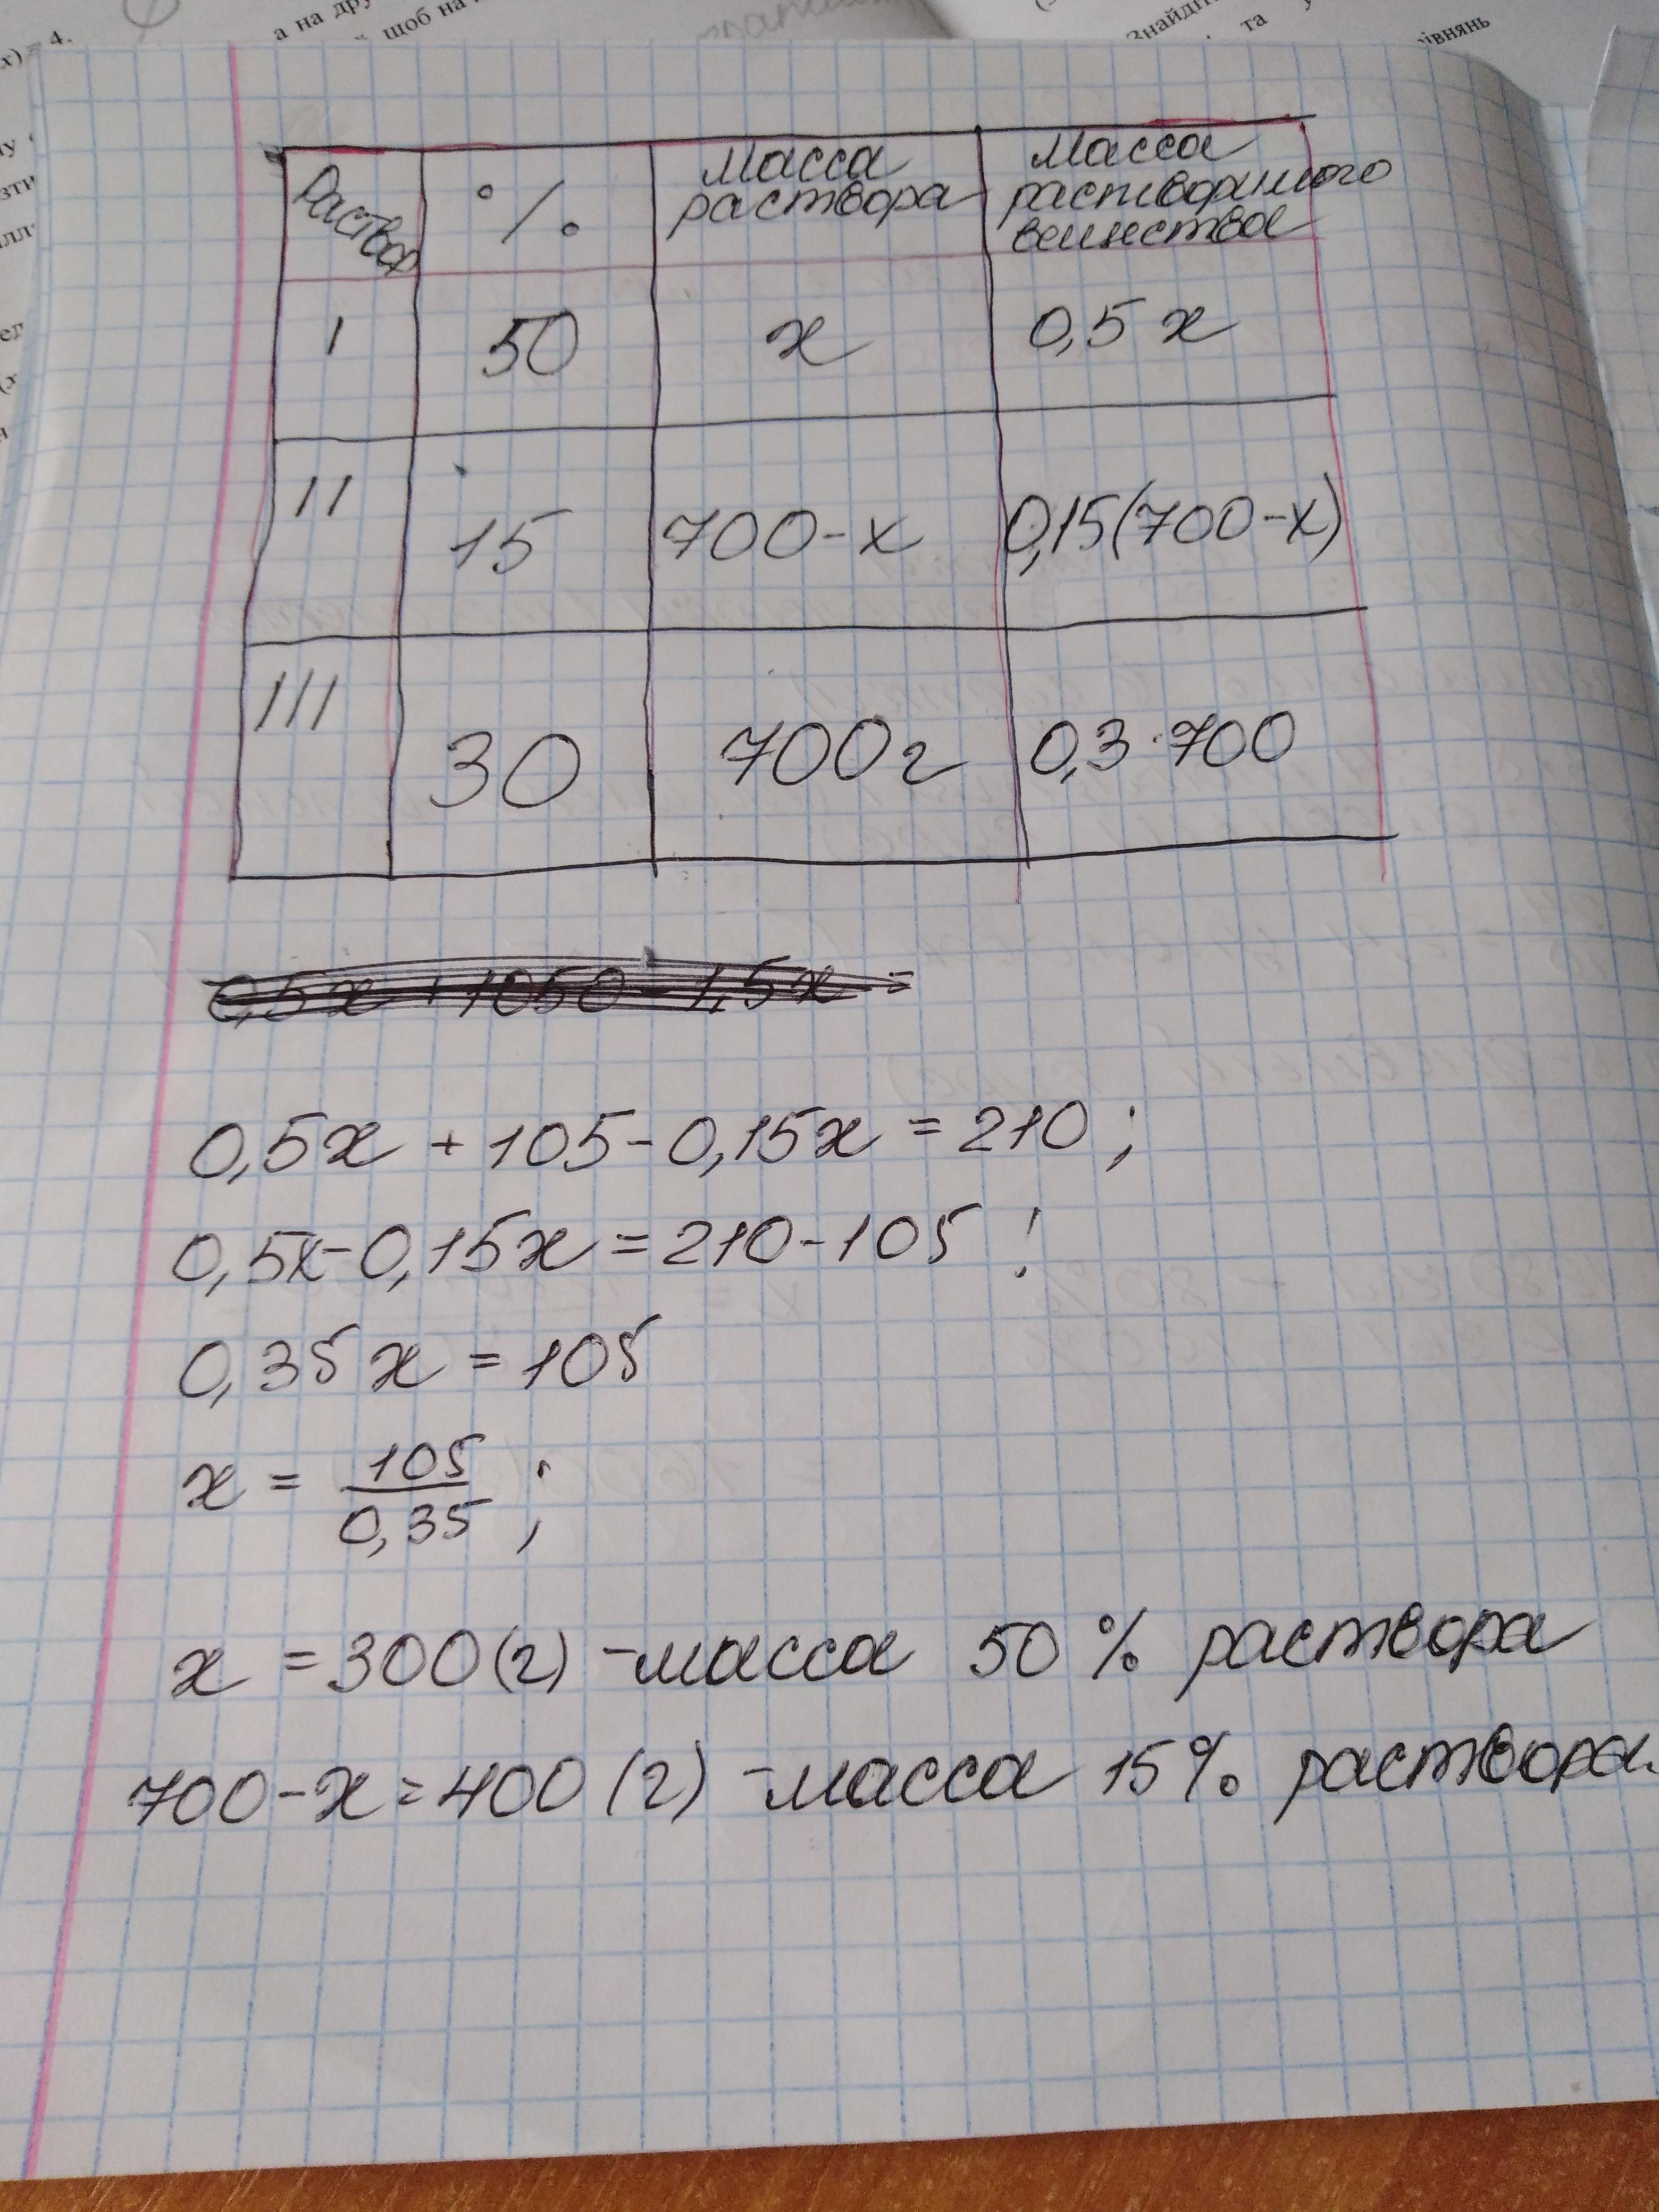 х) = 4.
а на
щоб на
Знайдіть
та
рівнянь
Раствор % масса раствора масса растворимого вещества
I 50 x 0,5 x
II 15 700-x 0,15(700-x)
III 30 700г 0,3·700
0,5x + 1050 - 1,5x =
0,5x + 105 - 0,15x = 210;
0,5x - 0,15x = 210 - 105 !
0,35 x = 105
x = 105/0,35 ;
x = 300(г) - масса 50 % раствора
700 - x = 400 (г) - масса 15% раствора.